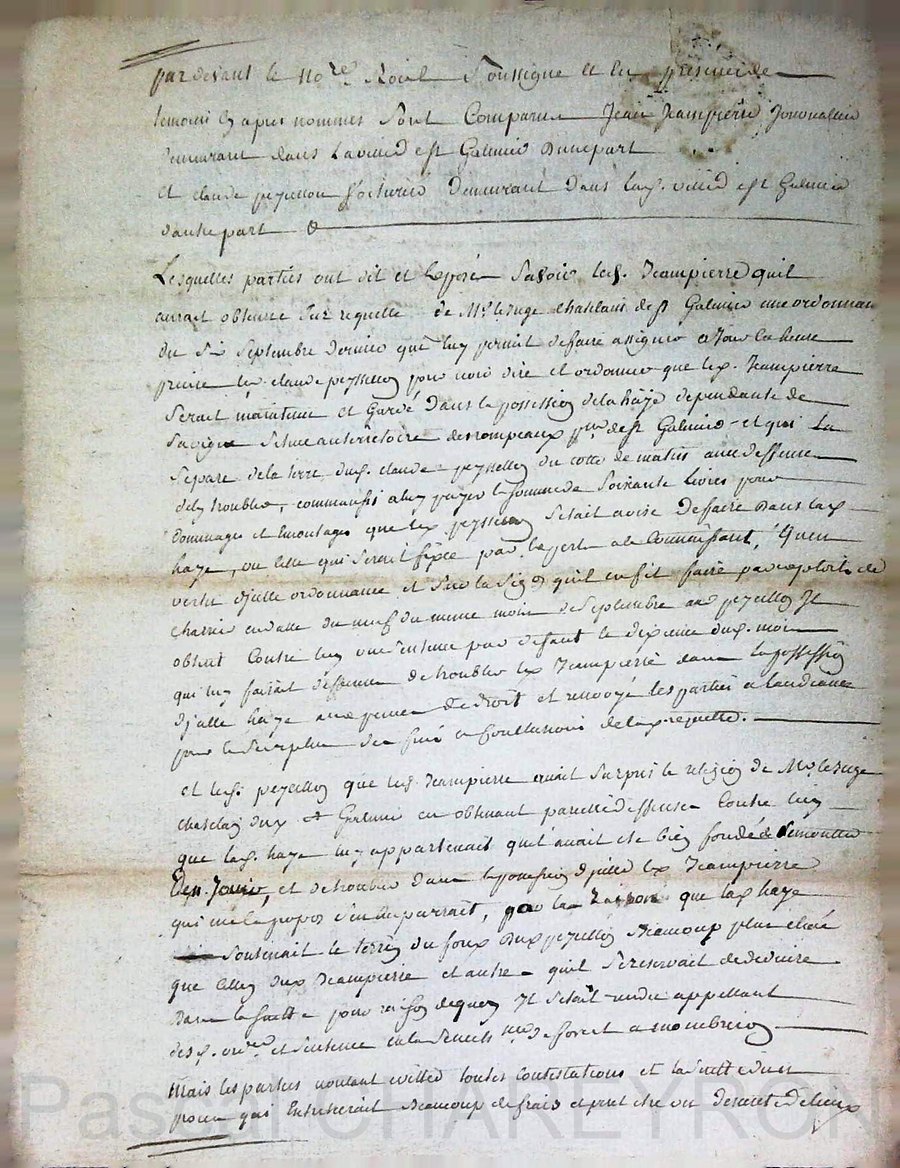 par devant le no.re Roial Soussigné et en presence de
temoins cy apres nommes Sont Comparus Jean Jeampierre Journalier
demeurant dans la ville de st Galmier Dune part
et claude peyssellon Voiturier Demeurant Dans lad. ville de st Galmier
dautre part
Lesquelles parties ont dit et Exposé Savoir led. Jeampierre quil
aurait obtenue Sur requette de Mr. le Juge chatelain de st Galmier une ordonnan
du Six Septembre dernier qui luy permit defaire assigner a Jour la heure
precise led. claude peyssellon pour voir dire et ordonner que led. Jeampierre
Serait maintenue et Gardé Dans la possession dela haye dependante de
Sa vigne Scitue au territoire des rompeaux psse de st Galmier et qui la
Separe dela terre dud. claude peyssellon du cotté de matin avec deffense
dely troubler, comm aussi a luy payer la Somme de Soixante Livres pour
Dommages et que led. peyssellon Setait avisé Defaire Dans lad.
haye, ou celle qui Serait fixée par Experts a ce Connaissant, Quen
vertu dicelle ordonnance et Sur la quil en fit faire par exploit de
Charrier en datte du neuf du meme mois de Septembre aud. peyssellon Il
obtint Contre luy une Sentence par defaut le dixieme dud. mois
qui luy faisait deffense de troubler led. Jeampierre dans la possession
dicelle haye aux peines de droit et renvoyé les parties a laudiance
pour le Surplus des fins et Conclusions de lad. requette.
et led. peyssellon que led. Jeampierre avait Surpris la religion de Mr. le Juge
chatelain dud. st Galmier en obtenant pareille deffense Contre luy
que lad. haye luy appartenait quil avait eté bien fondé de
den Jouir, et de troubler dans la possession dicelle led. Jeampierre
qui mal apropos Sen emparrait, par la Raison que lad. haye
Soutenait le terrin du fond dud. peyssellon Beaucoup plus elevé
que celluy dud. Jeampierre et autre quil Se reservait dededuire
Dans la Suitte pour raison dequoy Il Setait rendu appellant
desd. ord.ce et Sentence en la Senech.ée de forest a montbrison
Mais les parties voulant eviter toutes Contestations et la Suitte dun
proces qui Entrainerait Beaucoup de frais et peut etre un de lieux
Pascal CHAREYRON